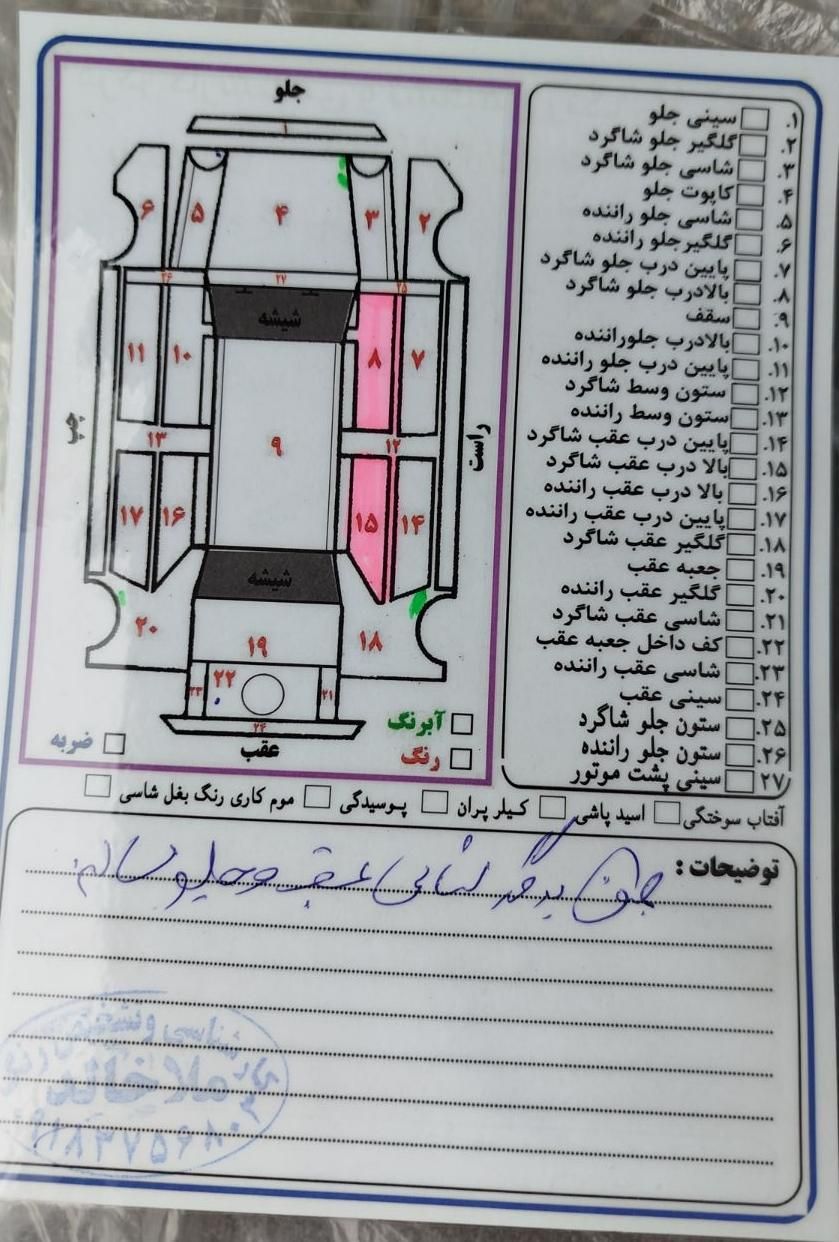 جلو
۱
۶
۵
۴
۳
۲
۲۶
۲۷
۲۵
شیشه
۱۱
۱۰
۸
۷
چپ
۱۳
۹
۱۲
راست
۱۷
۱۶
۱۵
۱۴
شیشه
۲۰
۱۹
۱۸
۲۳
۲۲
۲۱
۲۴
عقب
آبرنگ
رنگ
ضربه
۱. سینی جلو
۲. گلگیر جلو شاگرد
۳. شاسی جلو شاگرد
۴. کاپوت جلو
۵. شاسی جلو راننده
۶. گلگیرجلو راننده
۷. پایین درب جلو شاگرد
۸. بالادرب جلو شاگرد
۹. سقف
۱۰. بالادرب جلوراننده
۱۱. پایین درب جلو راننده
۱۲. ستون وسط شاگرد
۱۳. ستون وسط راننده
۱۴. پایین درب عقب شاگرد
۱۵. بالا درب عقب شاگرد
۱۶. بالا درب عقب راننده
۱۷. پایین درب عقب راننده
۱۸. گلگیر عقب شاگرد
۱۹. جعبه عقب
۲۰. گلگیر عقب راننده
۲۱. شاسی عقب شاگرد
۲۲. کف داخل جعبه عقب
۲۳. شاسی عقب راننده
۲۴. سینی عقب
۲۵. ستون جلو شاگرد
۲۶. ستون جلو راننده
۲۷. سینی پشت موتور
آفتاب سوختگی اسید پاشی کیلر پران پوسیدگی موم کاری رنگ بغل شاسی
توضیحات : عقب و جلو سالم
ملاخالد